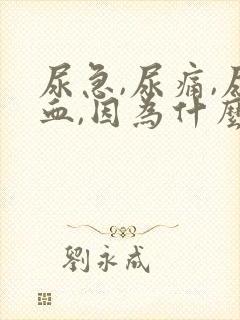 尿急,尿痛,尿
血,因為什麼
劉永成